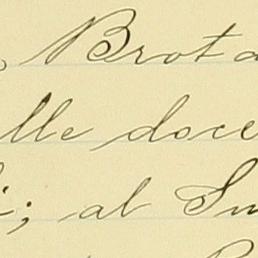 Brota
lle doce
; al Sn